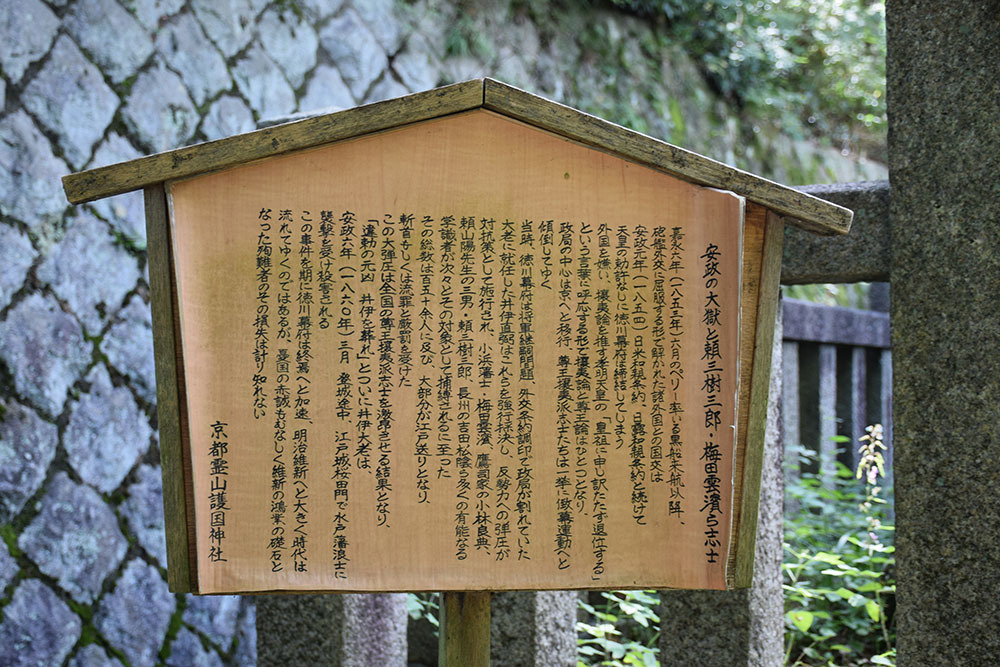 安政の大獄と頼三樹三郎・梅田雲濱ら志士
嘉永六年（一八五三年）六月のペリー率いる黒船来航以降、
砲艦外交に屈服する形で解かれた諸外国との国交は
安政元年（一八五四）日米和親条約、日露和親条約と続けて
天皇の勅許なしに徳川幕府は締結してしまう
外国を嫌い、攘夷論を推す孝明天皇の「皇祖に申し訳たたず退位する」
という言葉に呼応する形で攘夷論と尊王論はひとつとなり、
政局の中心は京へと移行、尊王攘夷派志士たちは一挙に倒幕運動へと
傾倒してゆく
当時、徳川幕府は将軍継嗣問題、外交条約調印で政局が割れていた
大老に就任した井伊直弼はこれらを強行採決し、反勢力への弾圧が
対抗策として施行され、小浜藩士・梅田雲濱、鷹司家の小林良典、
頼山陽先生の三男・頼三樹三郎、長州の吉田松陰ら多くの有能なる
学識者が次々とその対象として捕縛されるに至った
その総数は百五十余人に及び、大部分が江戸送りとなり、
斬首もしくは流罪と厳罰を受けた
この大弾圧は全国の尊王攘夷派志士を激昂させる結果となり、
「違勅の元凶　井伊を葬れ」とついに井伊大老は、
安政六年（一八六〇年）三月　登城途中、江戸城桜田門で水戸藩浪士に
襲撃を受け殺害される
この事件を期に徳川幕府は終焉へと加速、明治維新へと大きく時代は
流れてゆくのではあるが、憂国の赤誠もむなしく維新の鴻業の礎石と
なった殉難者のその損失は計り知れない
京都霊山護国神社